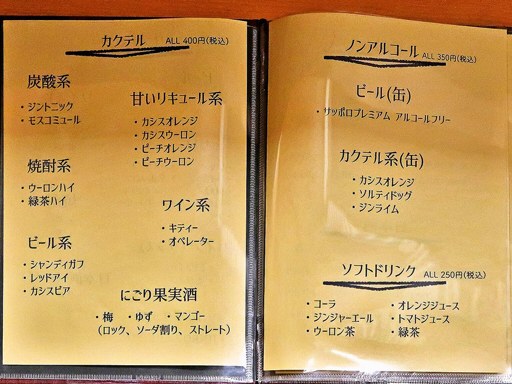 カクテル ALL 400円(税込)
炭酸系
・ジントニック
・モスコミュール
甘いリキュール系
・カシスオレンジ
・カシスウーロン
・ピーチオレンジ
・ピーチウーロン
焼酎系
・ウーロンハイ
・緑茶ハイ
ワイン系
・キティー
・オペレーター
ビール系
・シャンディガフ
・レッドアイ
・カシスビア
にごり果実酒
・梅 ・ゆず ・マンゴー
(ロック、ソーダ割り、ストレート)
ノンアルコール ALL 350円(税込)
ビール(缶)
・サッポロプレミアム アルコールフリー
カクテル系(缶)
・カシスオレンジ
・ソルティドッグ
・ジンライム
ソフトドリンク ALL 250円(税込)
・コーラ ・オレンジジュース
・ジンジャーエール ・トマトジュース
・ウーロン茶 ・緑茶